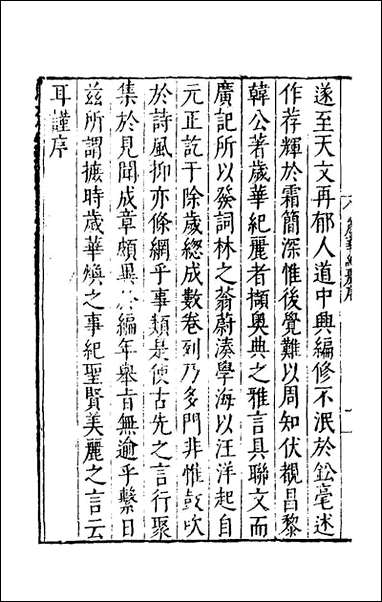 遂至天文再郁人道中興編修不泯於鈆毫述
作荐輝於霜簡深惟後覺難以周知伏覩昌黎
韓公著歲華紀麗者擷奧典之雅言具聯文而
廣記所以發詞林之蓊蔚湊學海以汪洋起自
元正訖于除歲緫成數卷列乃多門非惟鼓吹
於詩風抑亦條綱乎事類是使古先之言行聚
集於見聞成章頗異於編年舉言無逾乎繫日
兹所謂摭時歲華煥之事紀聖賢美麗之言云
耳謹序